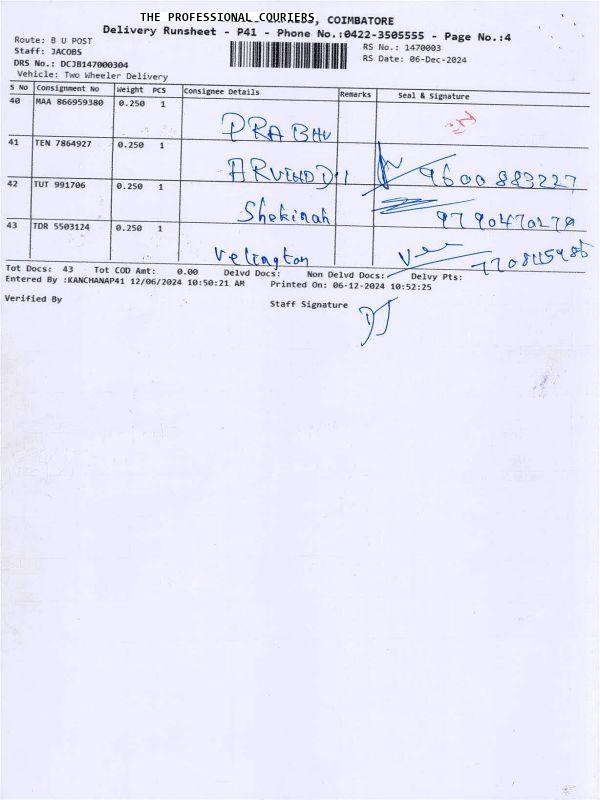 THE PROFESSIONAL COURIERS, COIMBATORE
Delivery Runsheet - P41 - Phone No.:0422-3505555 - Page No.:4
Route: B U POST
RS No.: 1470003
Staff: JACOBS
RS Date: 06-Dec-2024
DRS No.: DCJB147000304
Vehicle: Two Wheeler Delivery
S No Consignment No Weight PCS Consignee Details Remarks Seal & Signature
40 MAA 866959380 0.250 1
PRABHU
41 TEN 7864927 0.250 1
ARVIND D 9600883227
42 TUT 991706 0.250 1
Shekinah 9790470279
43 TDR 5503124 0.250 1
Velington
Tot Docs: 43 Tot COD Amt: 0.00 Delvd Docs: Non Delvd Docs: Delvy Pts:
Entered By :KANCHANAP41 12/06/2024 10:50:21 AM Printed On: 06-12-2024 10:52:25
Verified By
Staff Signature